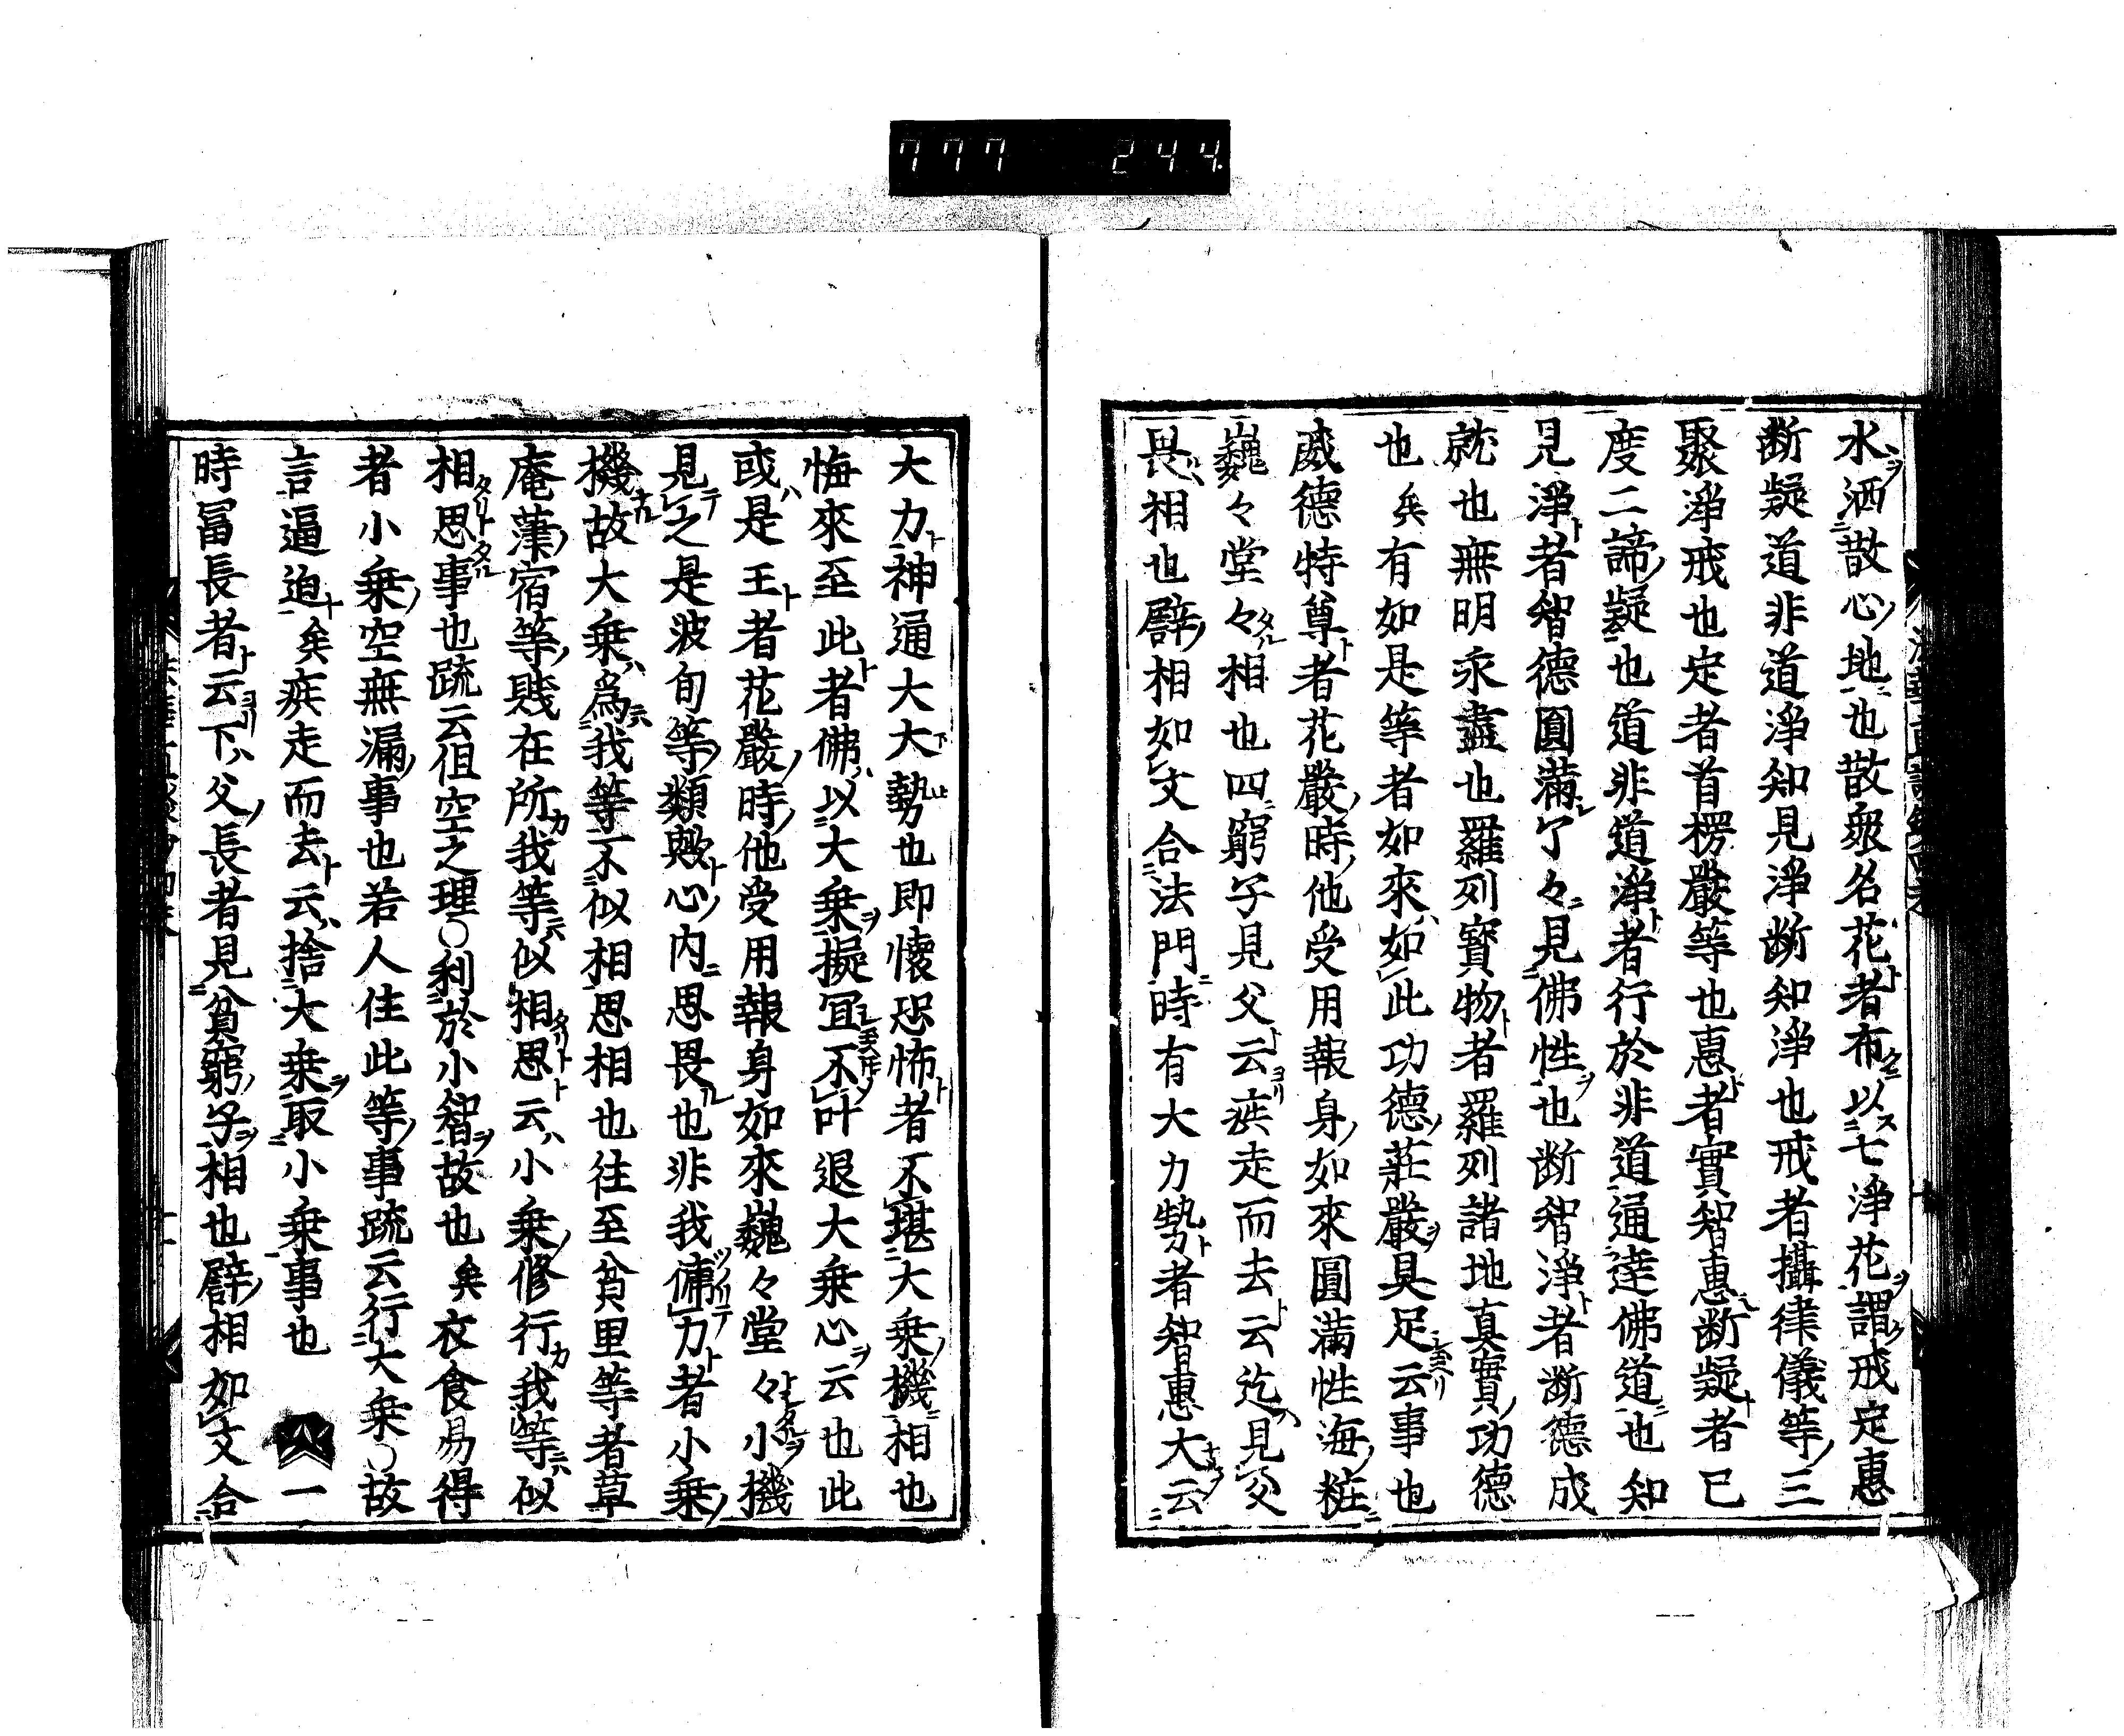 777 244
水洒散心地也散衆名花者布以七淨花謂戒定惠
断疑道非道淨知見淨断知淨也戒者攝律儀等三
聚淨戒也定者首楞嚴等也惠者實智惠断疑者已
度二諦疑也道非道淨者行於非道通達佛道也知
見淨者智德圓滿了々見佛性也断智淨者断德成
就也無明永盡也羅列寳物者羅列諸地真實功德
也矣有如是等者如來如此功德莊嚴具足云事也
威德特尊者花嚴時他受用報身如來圓滿性海粧
巍々堂々相也四窮子見父云疾走而去云迄見父
畏相也譬相如文合法門時有大力勢者智惠大云
大力神通大大勢也即懐恐怖者不堪大乗機相也
悔來至此者佛以大乗擬冝不叶退大乗心云也此
或是王者花嚴時他受用報身如來巍々堂々小機
見之是波旬等類歟心内思畏也非我傭力者小乗
機故大乗為我等不似相思相也往至貧里等者草
庵藁宿等賎在所我等似相思云小乗修行我等似
相思事也疏云但空之理○利於小智故也矣衣食易得
者小乗空無漏事也若人住此等事疏云行大乗○故
言逼迫矣疾走而去云捨大乗取小乗事也 一
時冨長者云下父長者見貧窮子相也譬相如文合